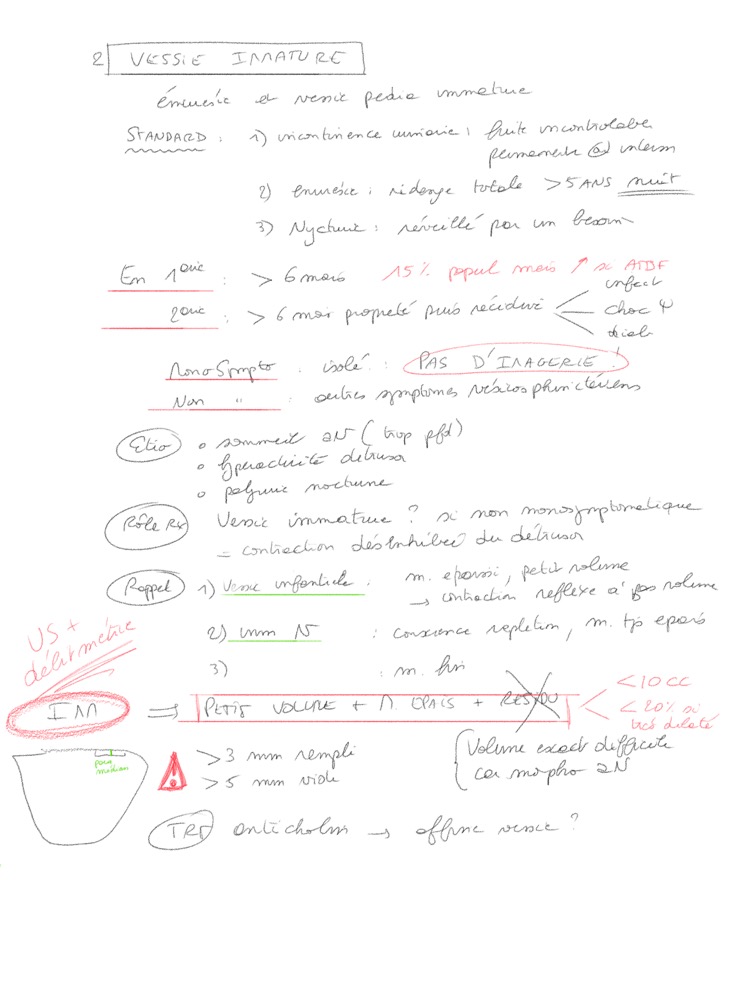 2 VESSIE IMMATURE
énurésie et vessie pedia immature
STANDARD : 1) incontinence urinaire : fuite incontrolable
permanente @ interm
2) enuresie : vidange totale > 5 ANS nuit
3) Nycturie : réveillé par un besoin
En 1aire : > 6 mois 15% popul mais ↗ si ATDF
2aire : > 6 moi propreté puis récidive
infect
choc Ψ
diab
MonoSympto : isolé : PAS D'IMAGERIE !
Non " : autres symptomes vésicosphinctériens
Etio
• sommeil aN (trop pfd)
• hyperactivité detrusor
• polyurie nocturne
Rôle Rx Vessie immature ? si non monosymptomatique
= contraction désinhibée du détrusor
Rappel 1) Vessie infantile : m. epaissi, petit volume
→ contraction reflexe à volume
2) imm N : conscience repletion, m. tjs epais
3) : m. fin
US +
débitmétrie
IMM ⇒ PETIT VOLUME + M. EPAIS + RESIDU
< 10 CC
< 20% si
très dilaté
paroi
median
> 3 mm rempli
> 5 mm vide
Volume exact difficile
car morpho aN
TRT anticholin → affine vessie ?